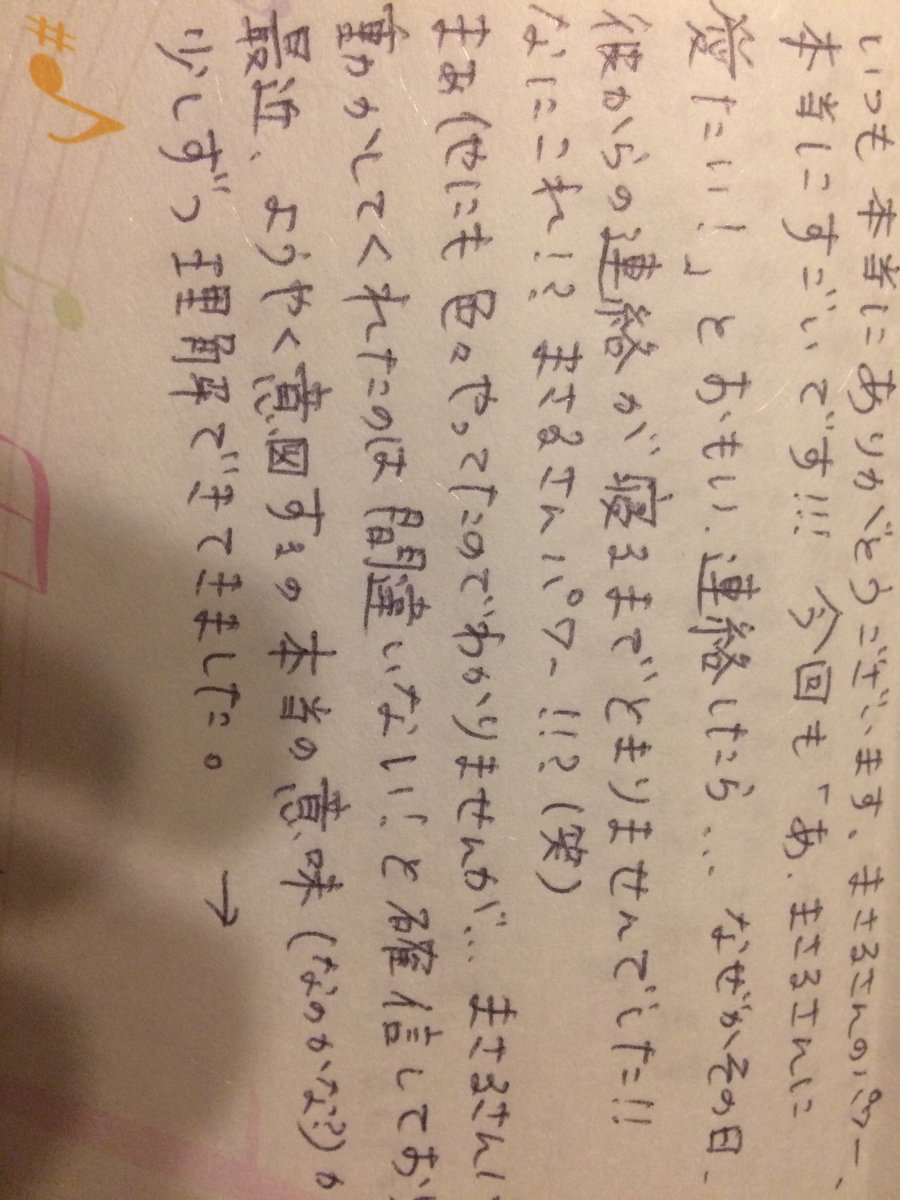 いつも本当にありがとうございます。まさるさんのパワー、
本当にすごいです!!! 今回も「あ、まさるさんに
愛たい!」とおもい、連絡したら... なぜかその日、
彼からの連絡が寝るまでとまりませんでした!!
なにこれ!? まさるさんパワー!!?(笑)
まぁ他にも色々やってたのでわかりませんが... まさるさんが
動かしてくれたのは間違いない!と確信してお
最近、ようやく意図するの本当の意味(なのかな?)が
少しずつ理解できてきました。→